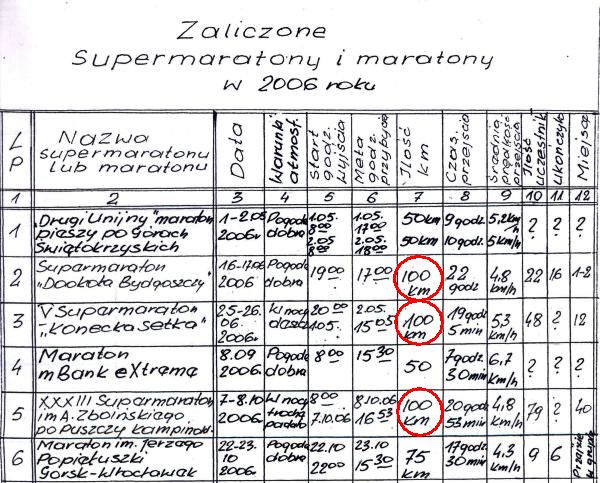 Zaliczone
Supermaratony i maratony
w 2006 roku
L P
Nazwa supermaratonu lub maratonu
Data
Warunki atmosf.
Start godz. wyjścia
Meta godz. przybycia
Ilość km
Czas. przejścia
Średnia prędkość przejścia
Ilość uczestnik
Ukończyło
Miejsce
1 2 3 4 5 6 7 8 9 10 11 12
1 "Drugi Unijny" maraton pieszy po Górach Świętokrzyskich 1-2.05 2006r. Pogoda dobra 1.05. 8 00 2.05 8 00 1.05. 17 00 2.05. 18 00 50km 50km 9 godz. 10 godz. 5,2km/h 5km/h ? ? ?
2 Supermaraton "Dookoła Bydgoszczy" 16-17.06 2006 Pogoda dobra 19 00 17 00 100 km 22 godz 4,8 km/h 22 16 1-2
3 V Supermaraton "Konecka Setka" 25-26. 06. 2006r. W nocy deszcz 20 00 1.05. 2.05. 15 05 100 km 19 godz 5 min 5,3 km/h 48 ? 12
4 Maraton mBank eXtreme 8.09 2006r. Pogoda dobra 8 00 15 30 50 7 godz 30 min 6,7 km/h ? ? ?
5 XXXIII Supermaraton im A. Zboińskiego po Puszczy Kampinoski. 7-8.10 2006r. W nocy trochę padało 8 00 7.10.06 8.10.06 16 53 100 km 20 godz 53 min 4,8 km/h 79 ? 40
6 Maraton im. Jerzego Popiełuszki Górsk-Włocławek 22-23. 10 2006r. Pogoda dobra 22.10 22 00 23.10 15 30 75 km 17 godz 30 min 4,3 km/h 9 6